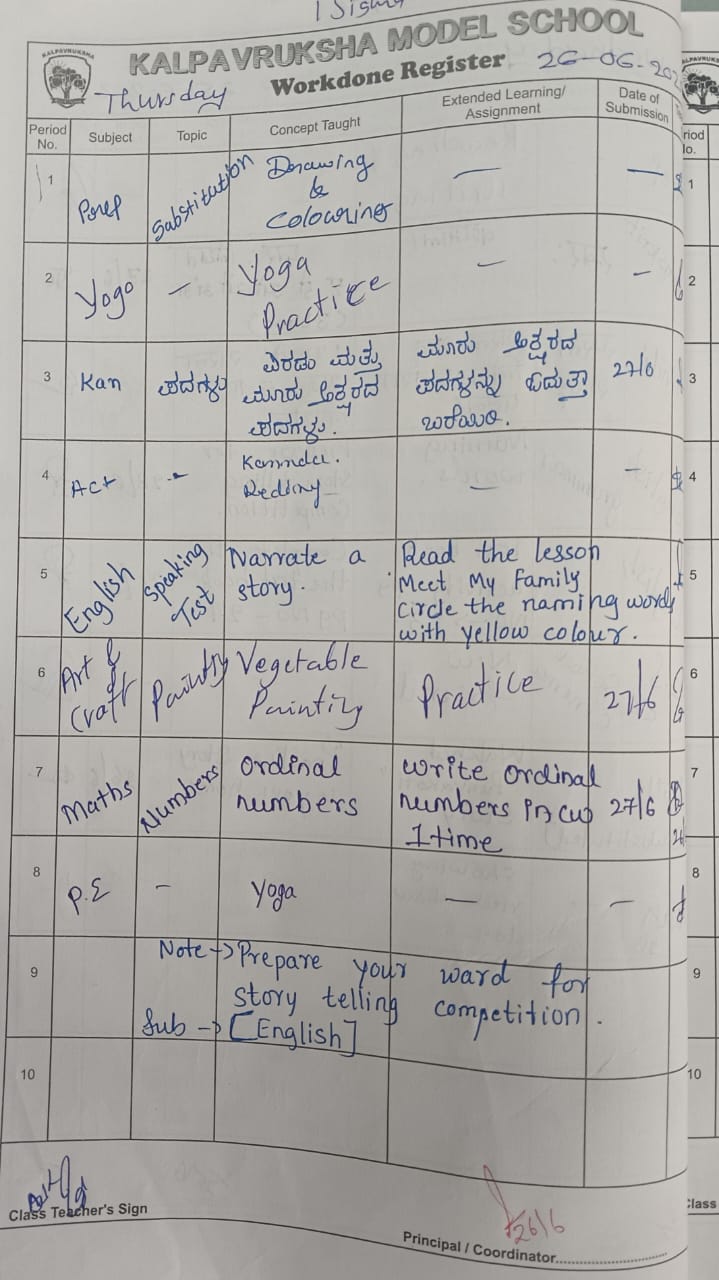 KALPAVRUKSHA MODEL SCHOOL
Workdone Register
26-06-202
Thursday
Period No. Subject Topic Concept Taught Extended Learning/ Assignment Date of Submission
1 Substitution Drawing & Colouring — —
2 Yogo - Yoga Practice - -
3 Kan ಪದಗಳು ಎರಡು ಮತ್ತು ಮೂರು ಅಕ್ಷರದ ಪದಗಳು. ಮೂರು ಅಕ್ಷರದ ಪದಗಳನ್ನು ಓದುತ್ತಾ ಬರೆಯಿರಿ. 27/6
4 Act - Kannda. Rediny - -
5 English Speaking Test Narrate a story. Read the lesson Meet My Family Circle the naming words with yellow colour.
6 Art & Craft Painting Vegetable Painting Practice 27/6
7 Maths Numbers Ordinal numbers Write ordinal numbers in cw 1 time 27/6
8 P.E - Yoga — -
9 Note -> Prepare your ward for
story telling competition.
Sub -> [English]
10
Class Teacher's Sign
26/6
Principal / Coordinator